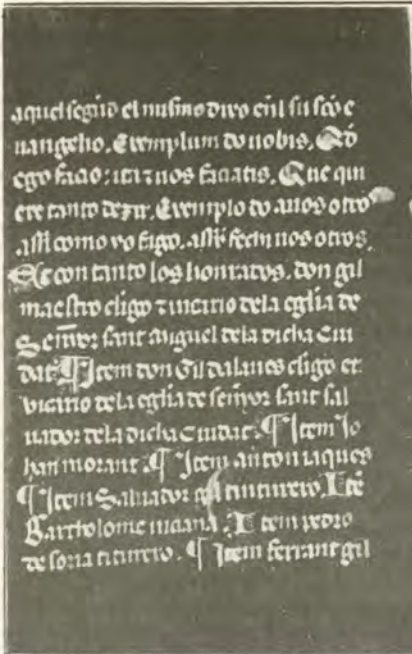 aquel segūd el mismo dixo enl su scō e
uangelio. Exemplum do uobis. Qd
ego facio: ita τ uos faciatis. Que qui
ere tanto dezir. Exemplo do auos otros
assi como yo fago. assi fech uos otros.
Et con tanto los honrados. don gil
maestro cligo τ vicario dela eglia de
Senyor sant miguel dela dicha Ciu
dat. ¶ Item don Gil dalanes cligo et
vicario de la eglia de senyor sant sal
uador dela dicha Ciudat. ¶ Item Jo
han morant. ¶ Item anton iaques
¶ Item Saluador gil tinturero. Itē
Bartholome uiciana. Item pedro
de soria titurero. ¶ Item ferrant gil